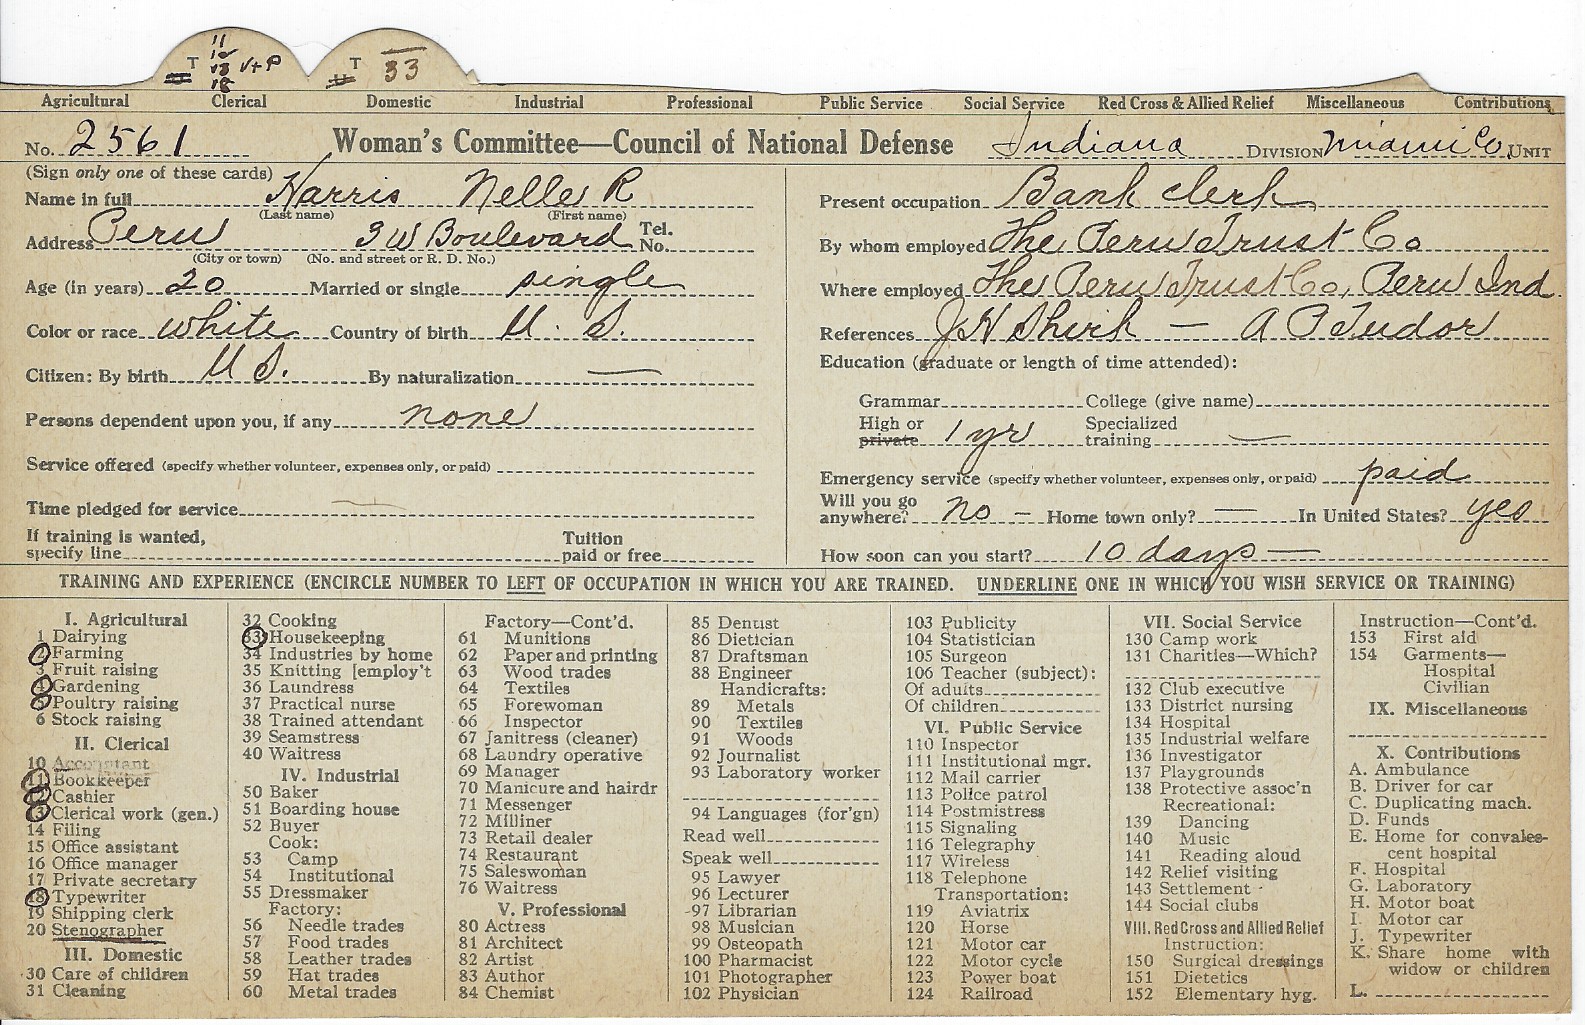 T 11 12 13 18 V+P T 33
Agricultural Clerical Domestic Industrial Professional Public Service Social Service Red Cross & Allied Relief Miscellaneous Contributions
No. 2561 Woman's Committee—Council of National Defense Indiana DIVISION Miami Co. UNIT
(Sign only one of these cards)
Name in full Harris Nelle R
(Last name) (First name)
Address Peru 3 W Boulevard Tel. No.
(City or town) (No. and street or R. D. No.)
Age (in years) 20 Married or single single
Color or race white Country of birth U. S.
Citizen: By birth U S. By naturalization —
Persons dependent upon you, if any none
Service offered (specify whether volunteer, expenses only, or paid)
Time pledged for service —
If training is wanted, specify line Tuition paid or free
Present occupation Bank clerk
By whom employed The Peru Trust Co
Where employed The Peru Trust Co, Peru Ind.
References J H Shirk — A P Tudor
Education (graduate or length of time attended):
Grammar College (give name)
High or private 1 yr Specialized training —
Emergency service (specify whether volunteer, expenses only, or paid) paid
Will you go anywhere? no – Home town only? — In United States? yes
How soon can you start? 10 days —
TRAINING AND EXPERIENCE (ENCIRCLE NUMBER TO LEFT OF OCCUPATION IN WHICH YOU ARE TRAINED. UNDERLINE ONE IN WHICH YOU WISH SERVICE OR TRAINING)
I. Agricultural
1 Dairying
2 Farming
3 Fruit raising
4 Gardening
5 Poultry raising
6 Stock raising
II. Clerical
10 Accountant
11 Bookkeeper
12 Cashier
13 Clerical work (gen.)
14 Filing
15 Office assistant
16 Office manager
17 Private secretary
18 Typewriter
19 Shipping clerk
20 Stenographer
III. Domestic
30 Care of children
31 Cleaning
32 Cooking
33 Housekeeping
34 Industries by home
35 Knitting [employ't
36 Laundress
37 Practical nurse
38 Trained attendant
39 Seamstress
40 Waitress
IV. Industrial
50 Baker
51 Boarding house
52 Buyer
Cook:
53 Camp
54 Institutional
55 Dressmaker
Factory:
56 Needle trades
57 Food trades
58 Leather trades
59 Hat trades
60 Metal trades
Factory—Cont'd.
61 Munitions
62 Paper and printing
63 Wood trades
64 Textiles
65 Forewoman
66 Inspector
67 Janitress (cleaner)
68 Laundry operative
69 Manager
70 Manicure and hairdr
71 Messenger
72 Milliner
73 Retail dealer
74 Restaurant
75 Saleswoman
76 Waitress
V. Professional
80 Actress
81 Architect
82 Artist
83 Author
84 Chemist
85 Dentist
86 Dietician
87 Draftsman
88 Engineer
Handicrafts:
89 Metals
90 Textiles
91 Woods
92 Journalist
93 Laboratory worker
94 Languages (for'gn)
Read well
Speak well
95 Lawyer
96 Lecturer
97 Librarian
98 Musician
99 Osteopath
100 Pharmacist
101 Photographer
102 Physician
103 Publicity
104 Statistician
105 Surgeon
106 Teacher (subject):
Of adults
Of children
VI. Public Service
110 Inspector
111 Institutional mgr.
112 Mail carrier
113 Police patrol
114 Postmistress
115 Signaling
116 Telegraphy
117 Wireless
118 Telephone
Transportation:
119 Aviatrix
120 Horse
121 Motor car
122 Motor cycle
123 Power boat
124 Railroad
VII. Social Service
130 Camp work
131 Charities—Which?
132 Club executive
133 District nursing
134 Hospital
135 Industrial welfare
136 Investigator
137 Playgrounds
138 Protective assoc'n
Recreational:
139 Dancing
140 Music
141 Reading aloud
142 Relief visiting
143 Settlement
144 Social clubs
VIII. Red Cross and Allied Relief
Instruction:
150 Surgical dressings
151 Dietetics
152 Elementary hyg.
Instruction—Cont'd.
153 First aid
154 Garments—
Hospital
Civilian
IX. Miscellaneous
X. Contributions
A. Ambulance
B. Driver for car
C. Duplicating mach.
D. Funds
E. Home for convales-
cent hospital
F. Hospital
G. Laboratory
H. Motor boat
I. Motor car
J. Typewriter
K. Share home with
widow or children
L.